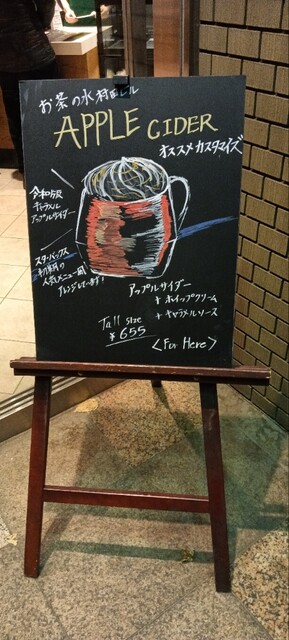 お茶の水村田ビル
APPLE CIDER
オススメカスタマイズ
令和版
キャラメル
アップルサイダー
スターバックス
初期の
人気メニュー風
アレンジしています！
アップルサイダー
+ ホイップクリーム
+ キャラメルソース
Tall size
¥655
<For Here>